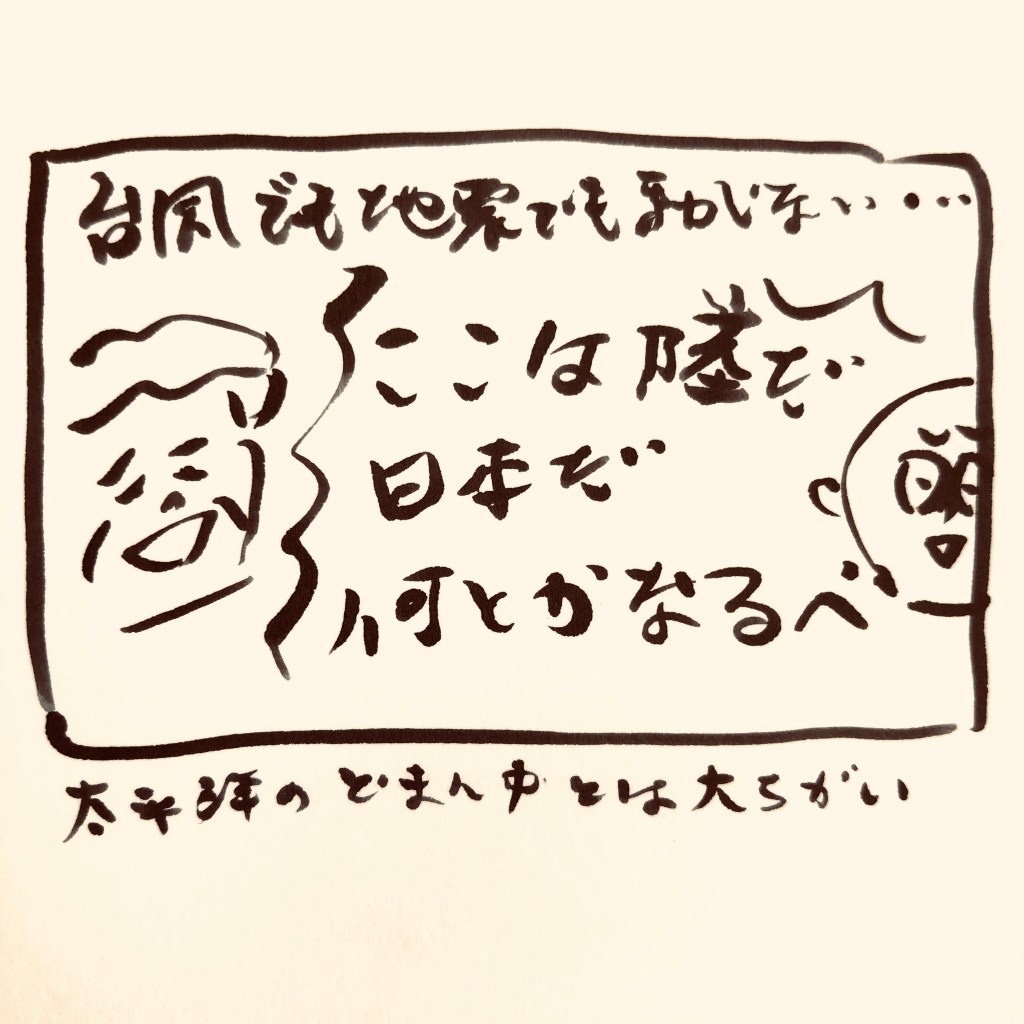 台風でも地震でも動じない・・・
ここは陸だ
日本だ
何とかなるべ
太平洋のどまん中とは大ちがい